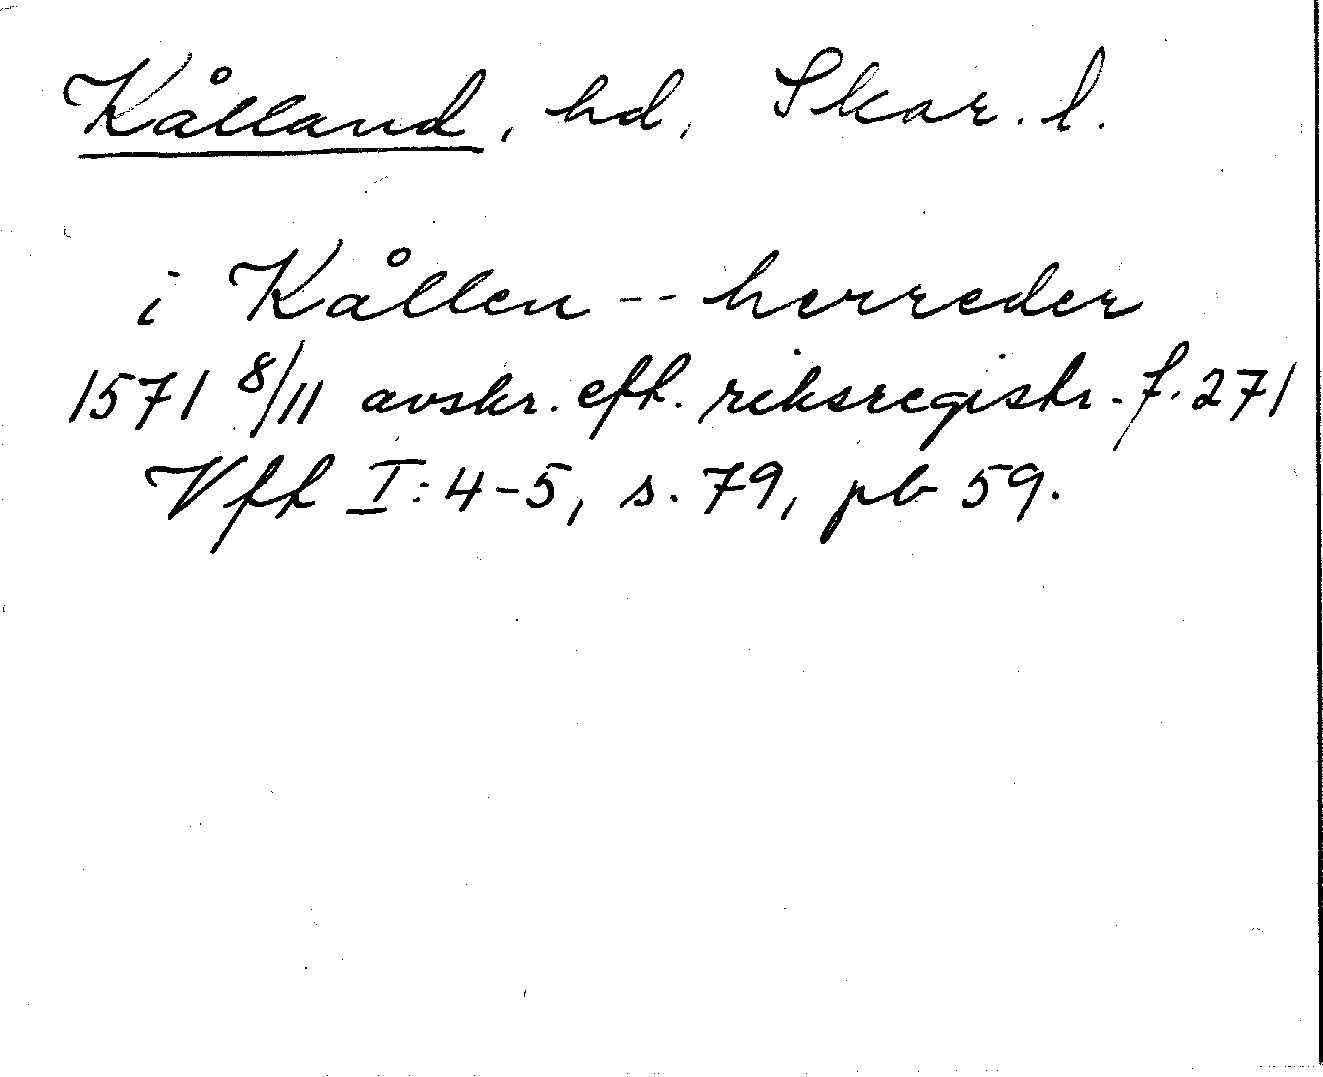 Kålland, hd, Skar. l.
i Kållen -- herreder
1571 8/11 avskr. eft. riksregistr. f. 271
Vfft I: 4-5, s. 79, pb 59.